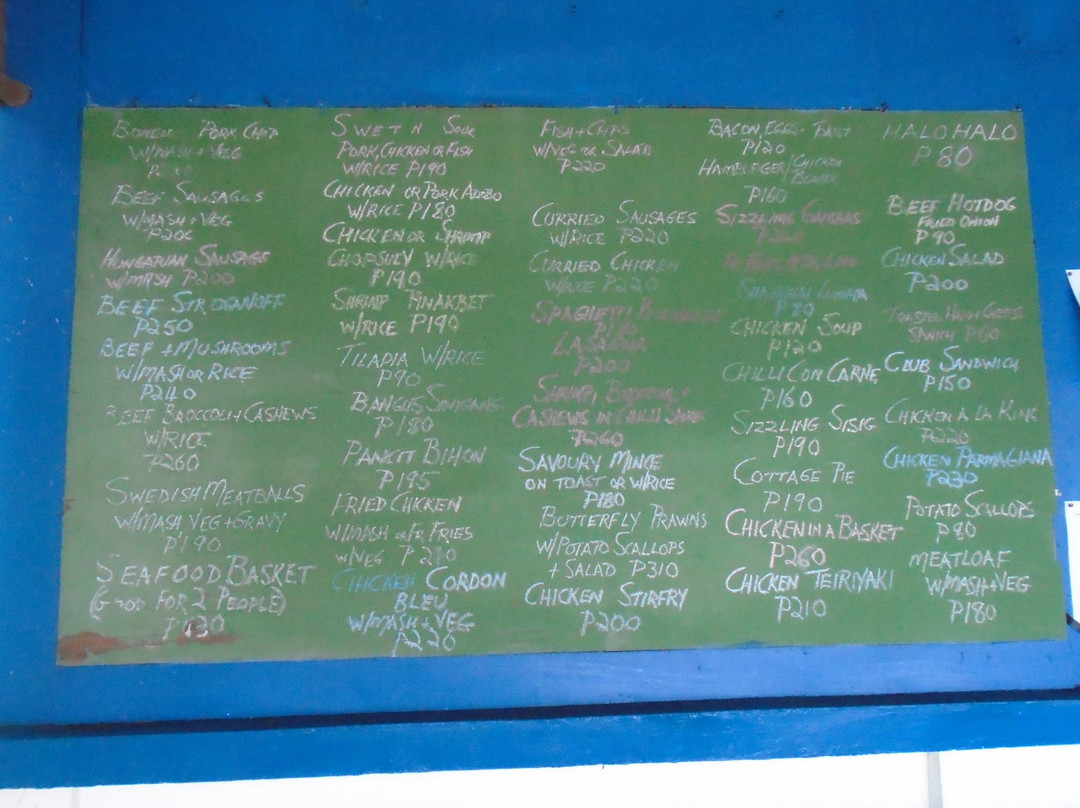 BONELESS PORK CHOP
W/MASH + VEG
BEEF SAUSAGES
W/MASH + VEG
P200
HUNGARIAN SAUSAGE
W/MASH P200
BEEF STROGANOFF
P250
BEEF + MUSHROOMS
W/MASH OR RICE
P240
BEEF BROCCOLI + CASHEWS
W/RICE
P260
SWEDISH MEATBALLS
W/MASH VEG + GRAVY
P190
SEAFOOD BASKET
(GOOD FOR 2 PEOPLE)
SWET N SOUR
PORK, CHICKEN OR FISH
W/RICE P190
CHICKEN OR PORK ADOBO
W/RICE P180
CHICKEN OR SHRIMP
CHOPSUEY W/RICE
P190
SHRIMP PINAKBET
W/RICE P190
TILAPIA W/RICE
P90
BANGUS SINIGANG
P180
PANCIT BIHON
P195
FRIED CHICKEN
W/MASH OR FR FRIES
W/VEG P210
CHICKEN CORDON
BLEU
W/MASH + VEG
P220
FISH + CHIPS
W/VEG OR SALAD
P220
CURRIED SAUSAGES
W/RICE P220
CURRIED CHICKEN
W/RICE P220
SPAGHETTI BOLOGNESE
LASAGNA
P200
SHRIMP, BROCCOLI +
CASHEWS IN CHILLI SAUCE
P260
SAVOURY MINCE
ON TOAST OR W/RICE
P180
BUTTERFLY PRAWNS
W/POTATO SCALLOPS
+ SALAD P310
CHICKEN STIRFRY
P200
BACON, EGGS + TOAST
P120
HAMBURGER/CHICKEN
BURGER
P160
SIZZLING GAMBAS
SHANGHAI LUMPIA
P80
CHICKEN SOUP
P120
CHILLI CON CARNE
P160
SIZZLING SISIG
P190
COTTAGE PIE
P190
CHICKEN IN A BASKET
P260
CHICKEN TEIRIYAKI
P210
HALO HALO
P80
BEEF HOTDOG
FRIED ONION
P90
CHICKEN SALAD
P200
TOASTED HAM + CHEESE
SWICH P60
CLUB SANDWICH
P150
CHICKEN A LA KING
P220
CHICKEN PARMAGIANA
P230
POTATO SCALLOPS
P80
MEATLOAF
W/MASH + VEG
P180